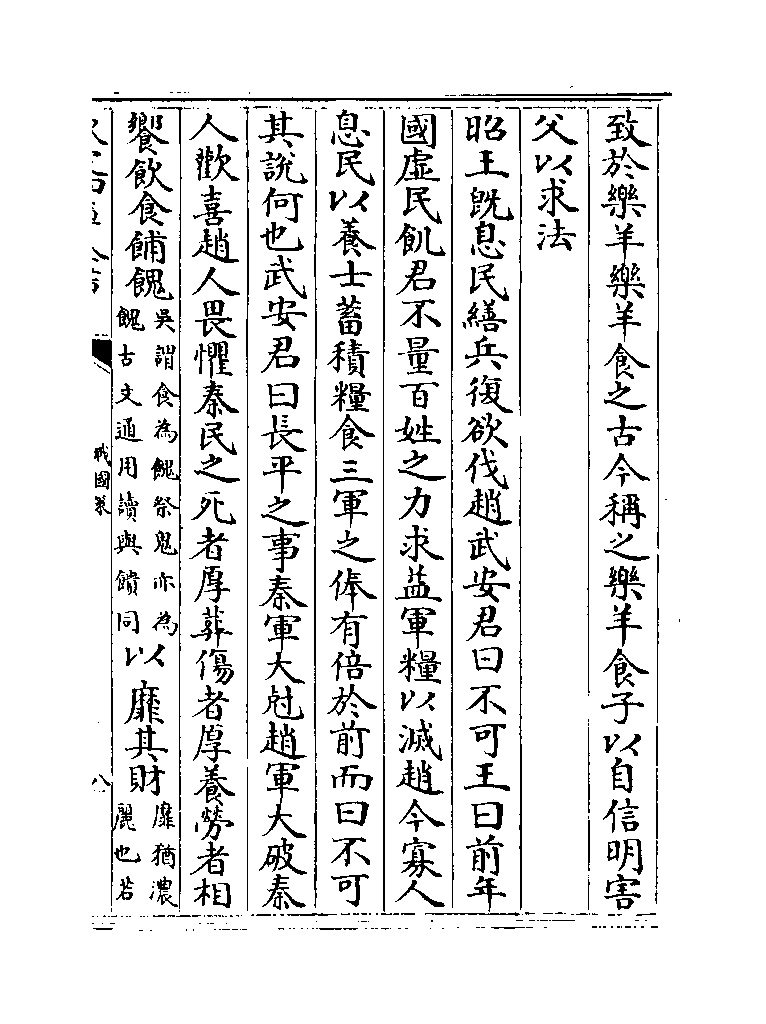 致於樂羊樂羊食之古今稱之樂羊食子以自信明害
父以求法
昭王既息民繕兵復欲伐趙武安君曰不可王曰前年
國虛民飢君不量百姓之力求益軍糧以滅趙今寡人
息民以養士蓄積糧食三軍之俸有倍於前而曰不可
其說何也武安君曰長平之事秦軍大尅趙軍大破秦
人歡喜趙人畏懼秦民之死者厚葬傷者厚養勞者相
饗飲食餔餽吳謂食為餽祭鬼亦為餽古文通用讀與饋同以靡其財靡猶濃麗也若
戰國策
八